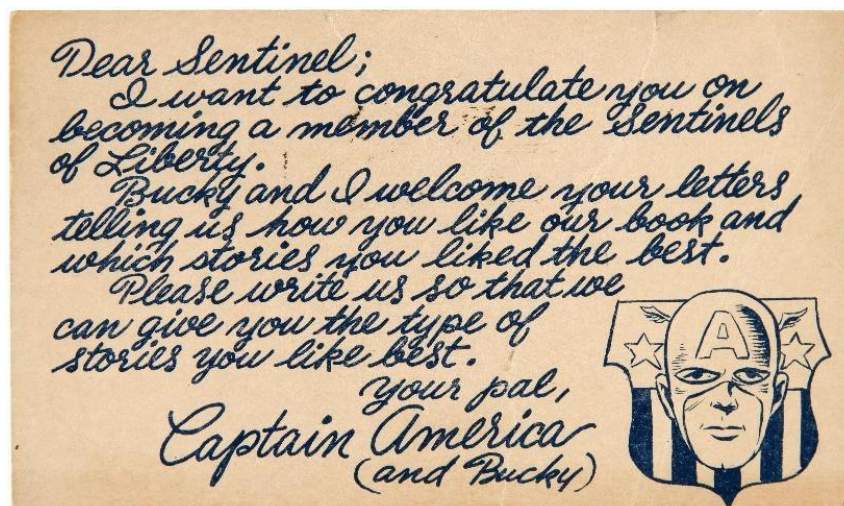 Dear Sentinel;
I want to congratulate you on
becoming a member of the Sentinels
of Liberty.
Bucky and I welcome your letters
telling us how you like our book and
which stories you liked the best.
Please write us so that we
can give you the type of
stories you like best.
Your pal,
Captain America
(and Bucky)
A